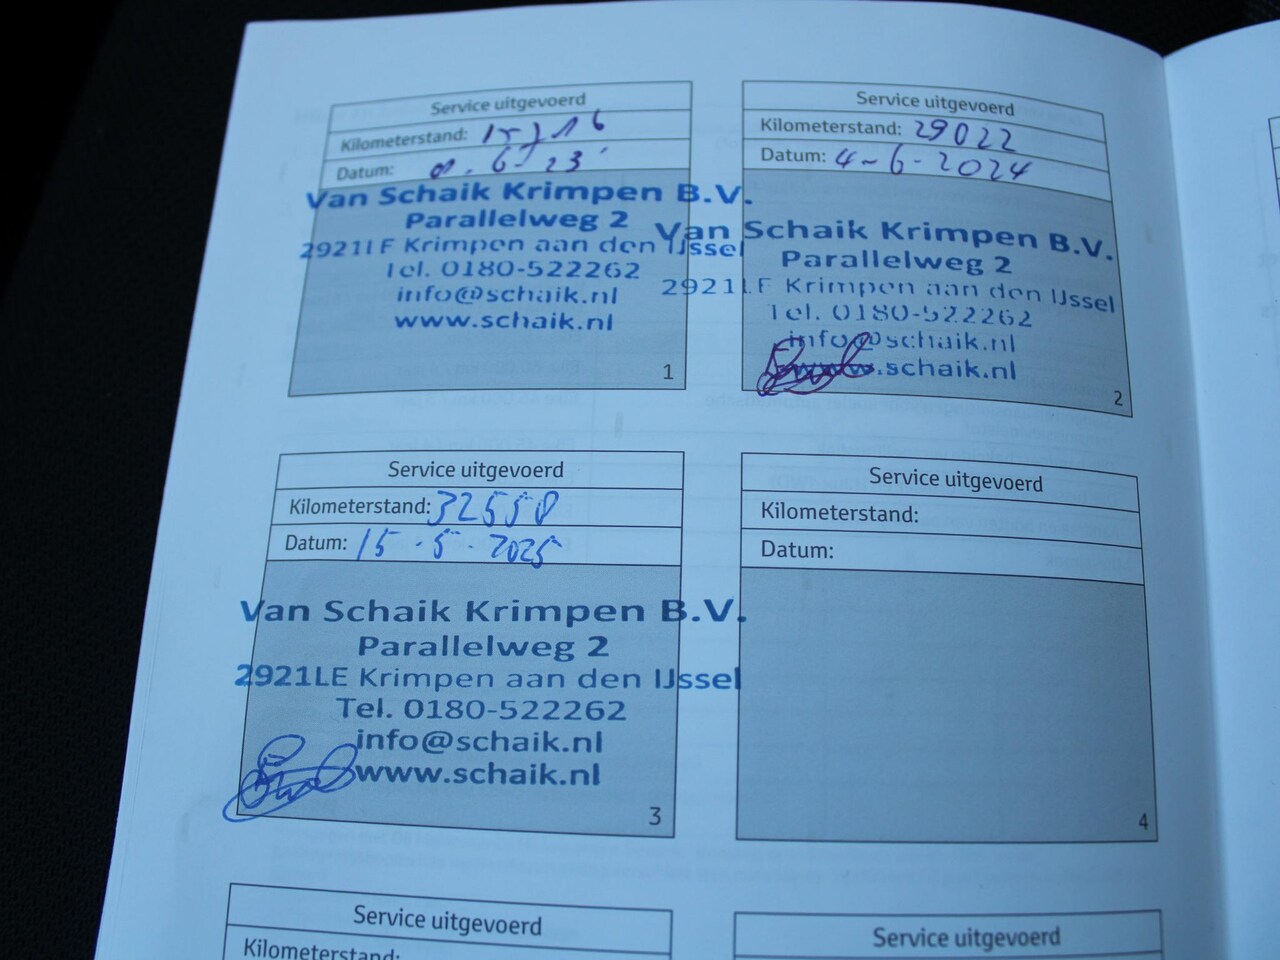 Service uitgevoerd
Kilometerstand: 15716
Datum: 8.6-23
Van Schaik Krimpen B.V.
Parallelweg 2
2921LE Krimpen aan den IJssel
Tel. 0180-522262
info@schaik.nl
www.schaik.nl
1
Service uitgevoerd
Kilometerstand: 29022
Datum: 4-6-2024
Van Schaik Krimpen B.V.
Parallelweg 2
2921LE Krimpen aan den IJssel
Tel. 0180-522262
info@schaik.nl
www.schaik.nl
2
Service uitgevoerd
Kilometerstand: 32550
Datum: 15.5.2025
Van Schaik Krimpen B.V.
Parallelweg 2
2921LE Krimpen aan den IJssel
Tel. 0180-522262
info@schaik.nl
www.schaik.nl
3
Service uitgevoerd
Kilometerstand:
Datum:
4
Service uitgevoerd
Kilometerstand:
Service uitgevoerd